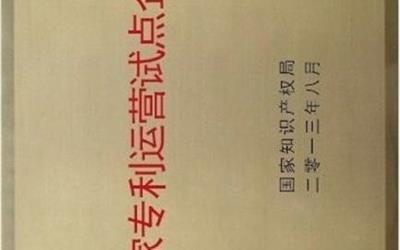 家专利运营试点企
国家知识产权局
二零一三年八月